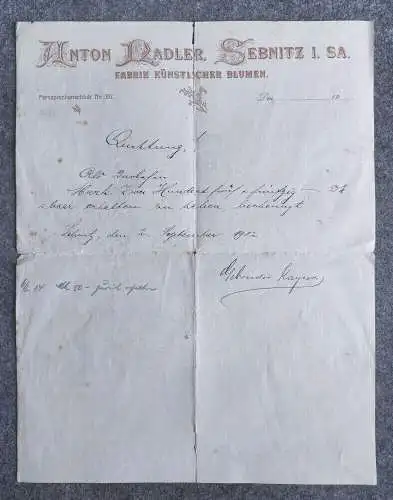 ANTON NADLER, SEBNITZ I. SA.
FABRIK KÜNSTLICHER BLUMEN.
Fernsprechanschluß Nr.
Den 19
Quittung!
Als Darlehen
Mark Zwei Hundert fünf & fünfzig
baar erhalten zu haben bescheinigt
Sebnitz, den 2. September 1912
Gebrüder Kayser